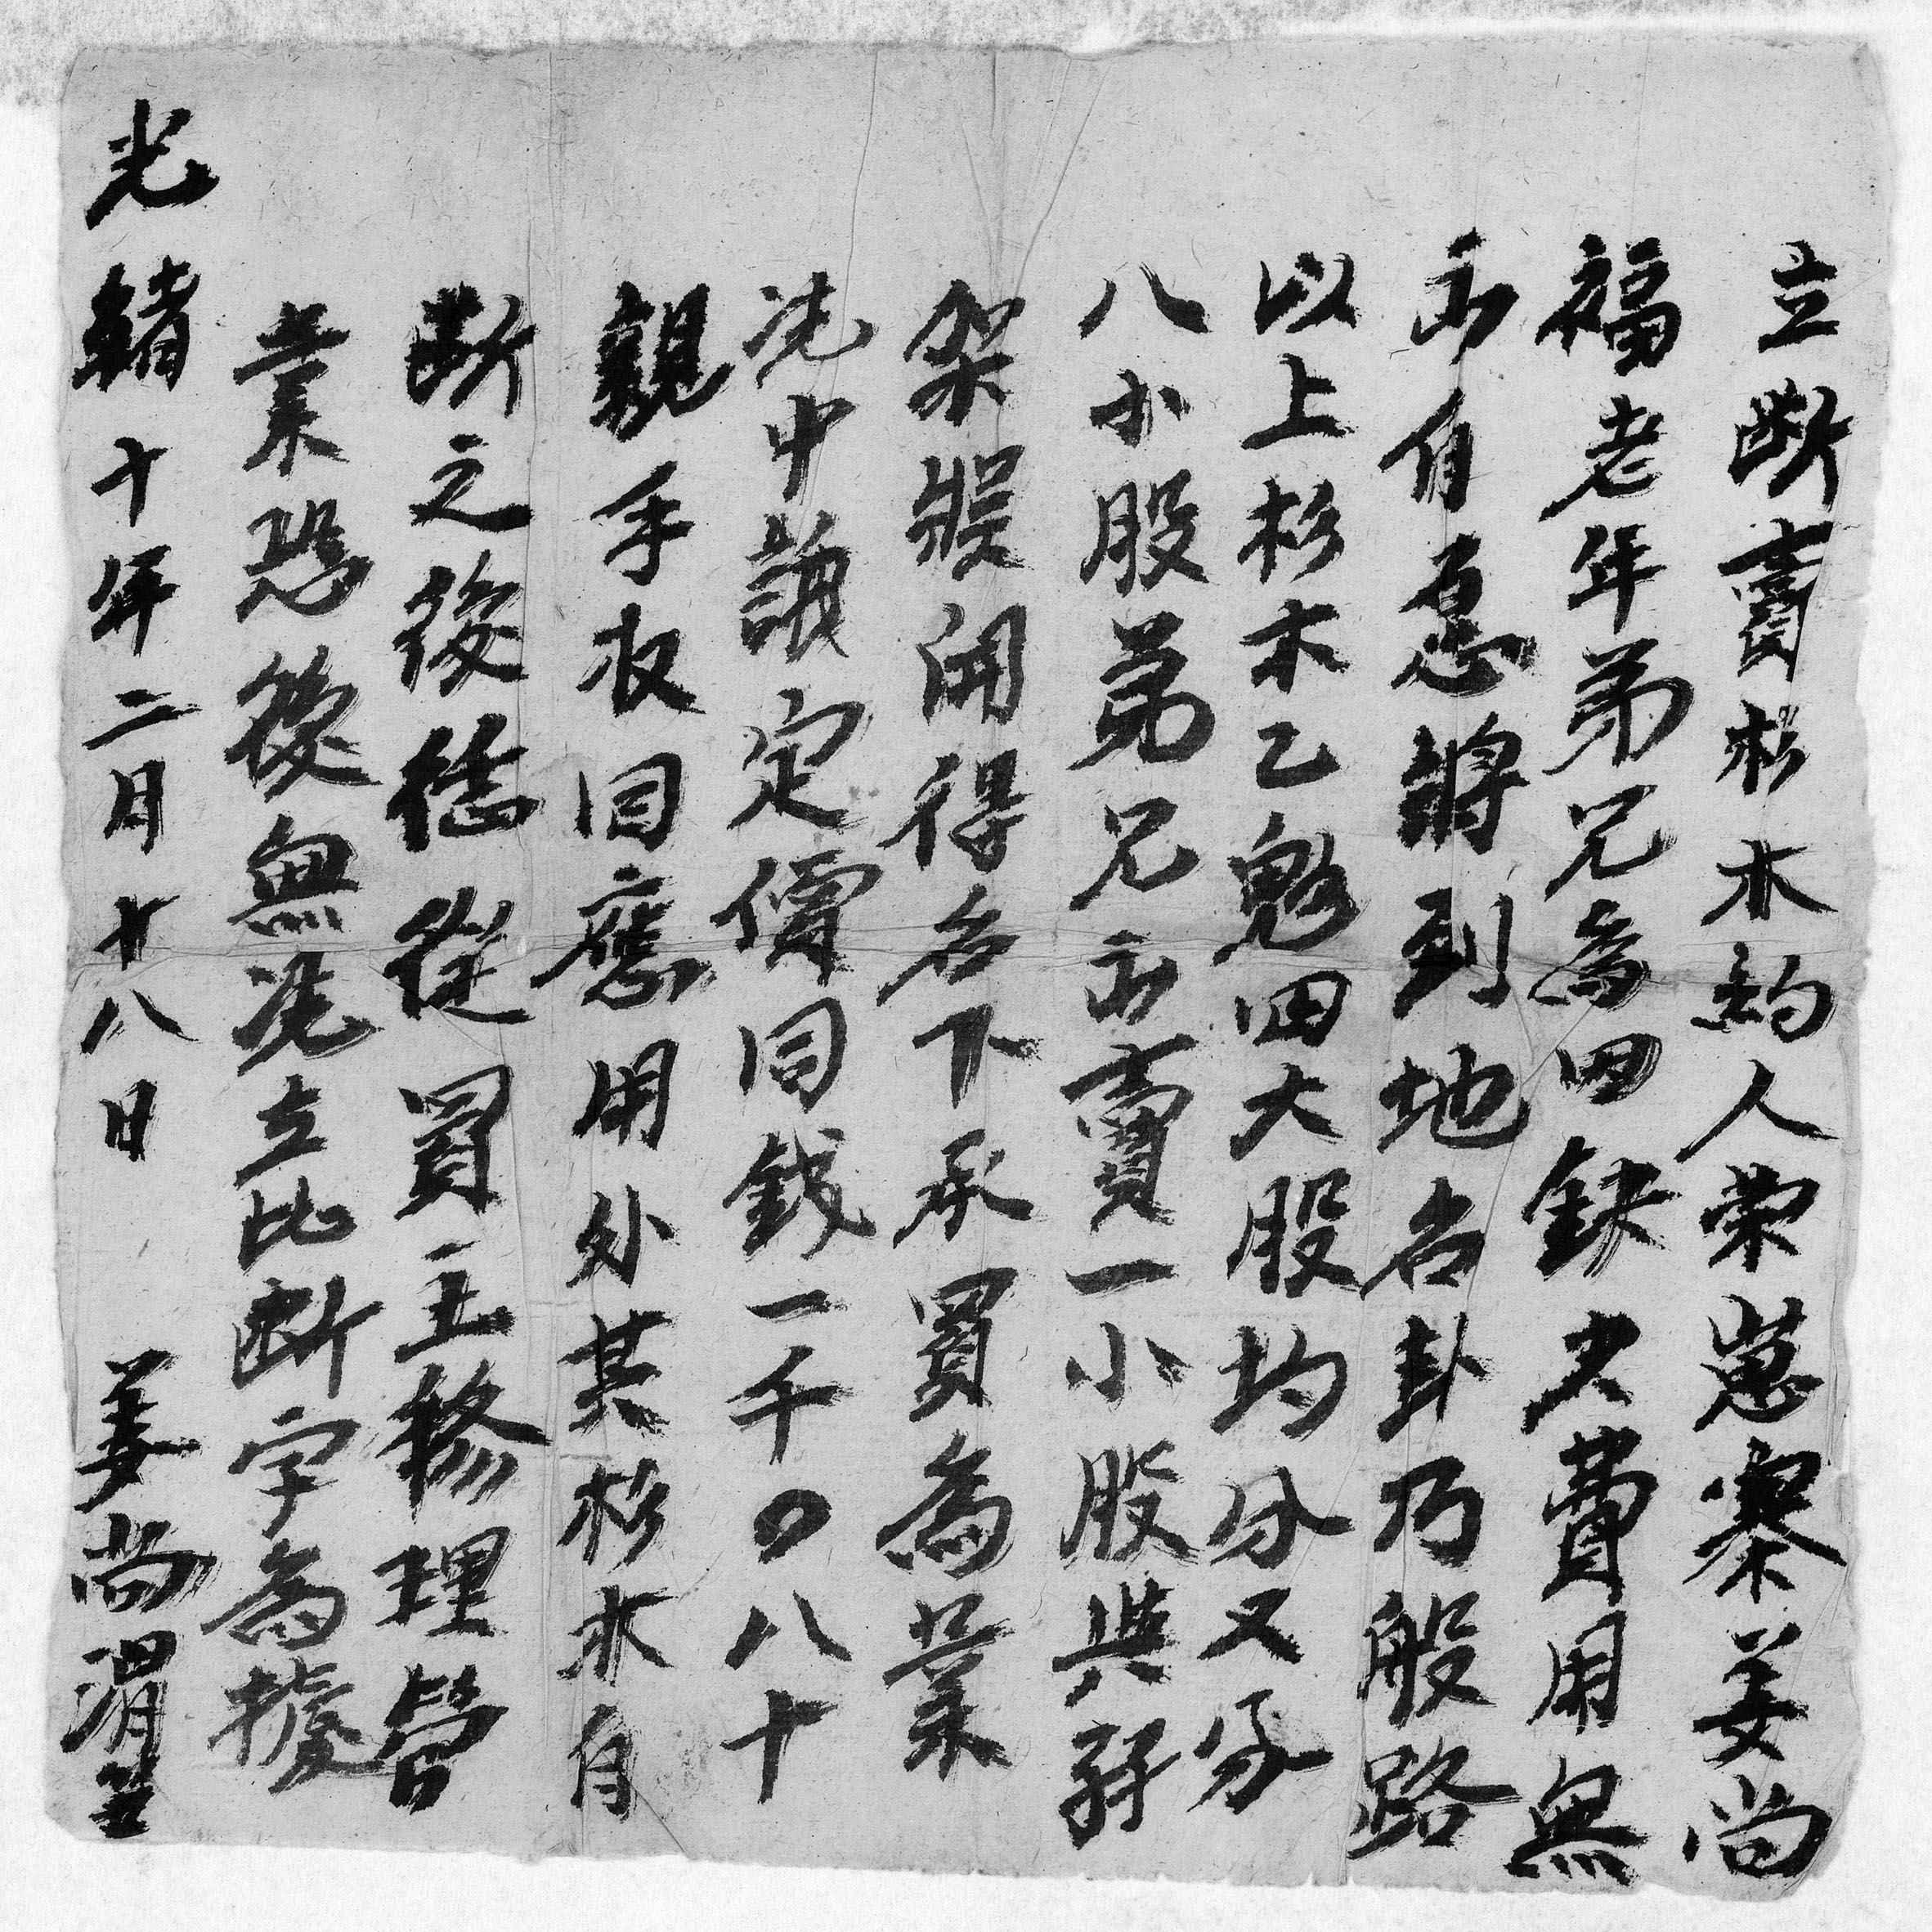 立断賣杉木約人荣嵬寨姜尚
福老年弟兄為田缺少費用無
出自愿將到地名卦乃般路
以上杉木乙魁四大股均分又分
八小股弟兄出賣一小股與
架開得名下承買為業
凭中議定價同錢一千〇八十
親手收回應用外其杉木自
断之後從買主修理管
業恐後無凭立比断字為據
光緒十年二月十八日 姜尚渭筆